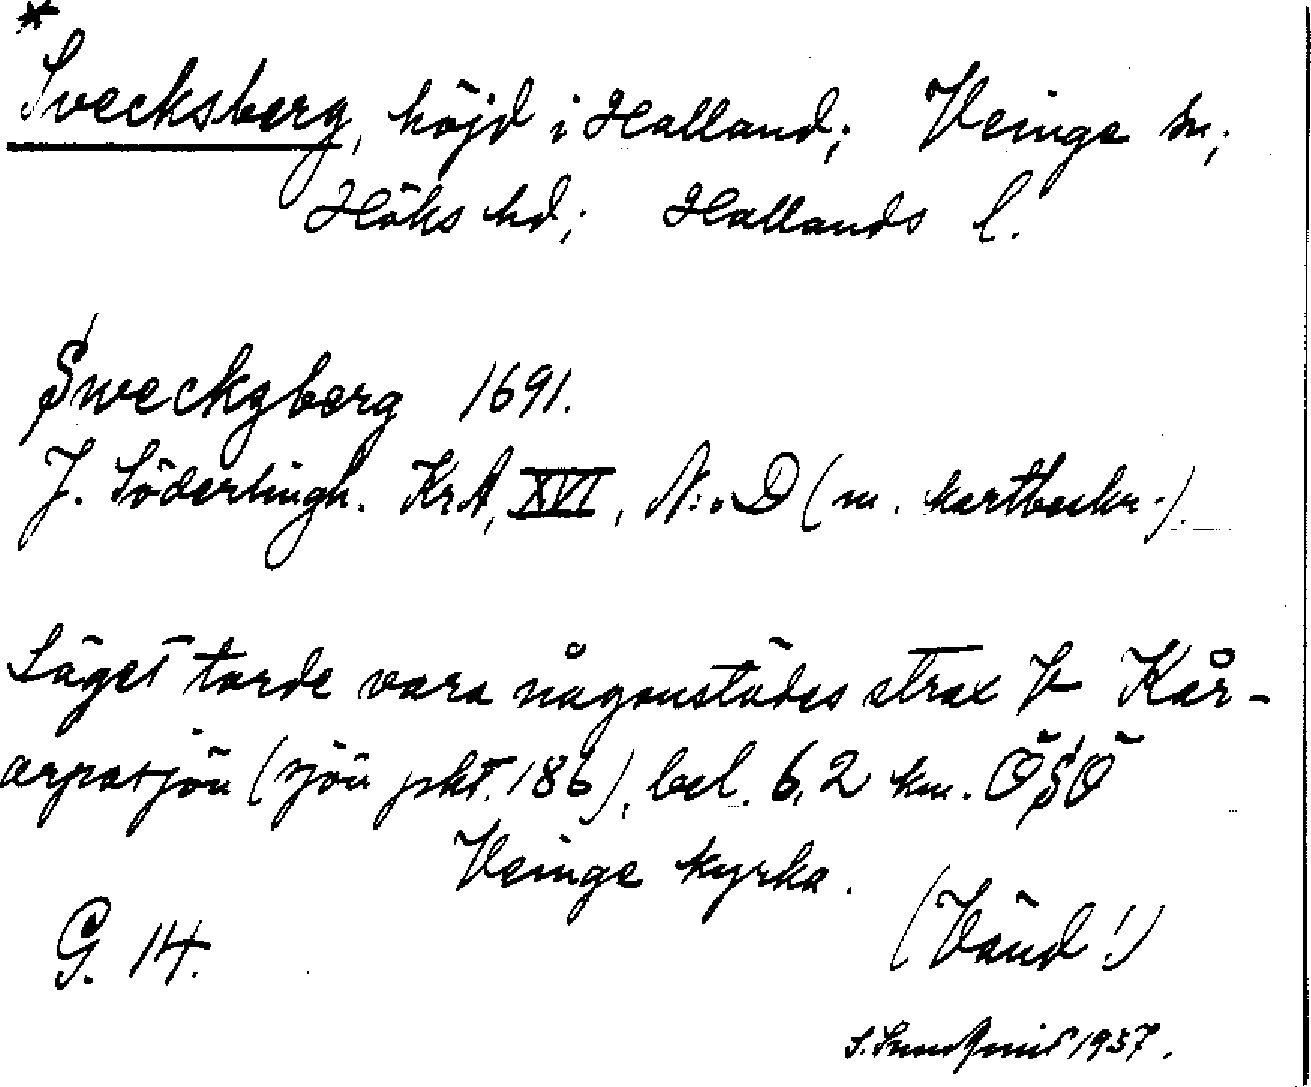 *
Svecksberg, höjd i Halland; Veinge sn;
Höks hd; Hallands l.
Sweckzberg 1691.
J. Söderlingh. KrA, XVI, N:o D (m. kartbeskr.).
Läget torde vara någonstädes strax V Kår-
arpasjön (sjön pkt. 186), bel. 6,2 km. ÖSÖ
Veinge kyrka.
(Vänd!)
G. 14.
1937.